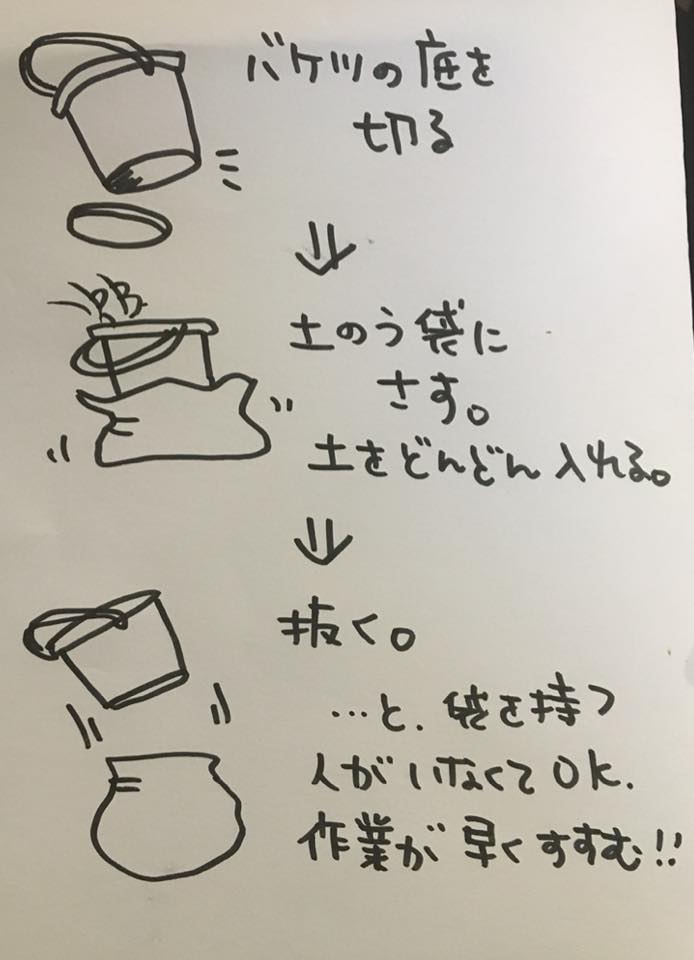 バケツの底を
切る
土のう袋に
さす。
土をどんどん入れる。
抜く。
…と、袋を持つ
人がいなくてOK.
作業が早くすすむ!!